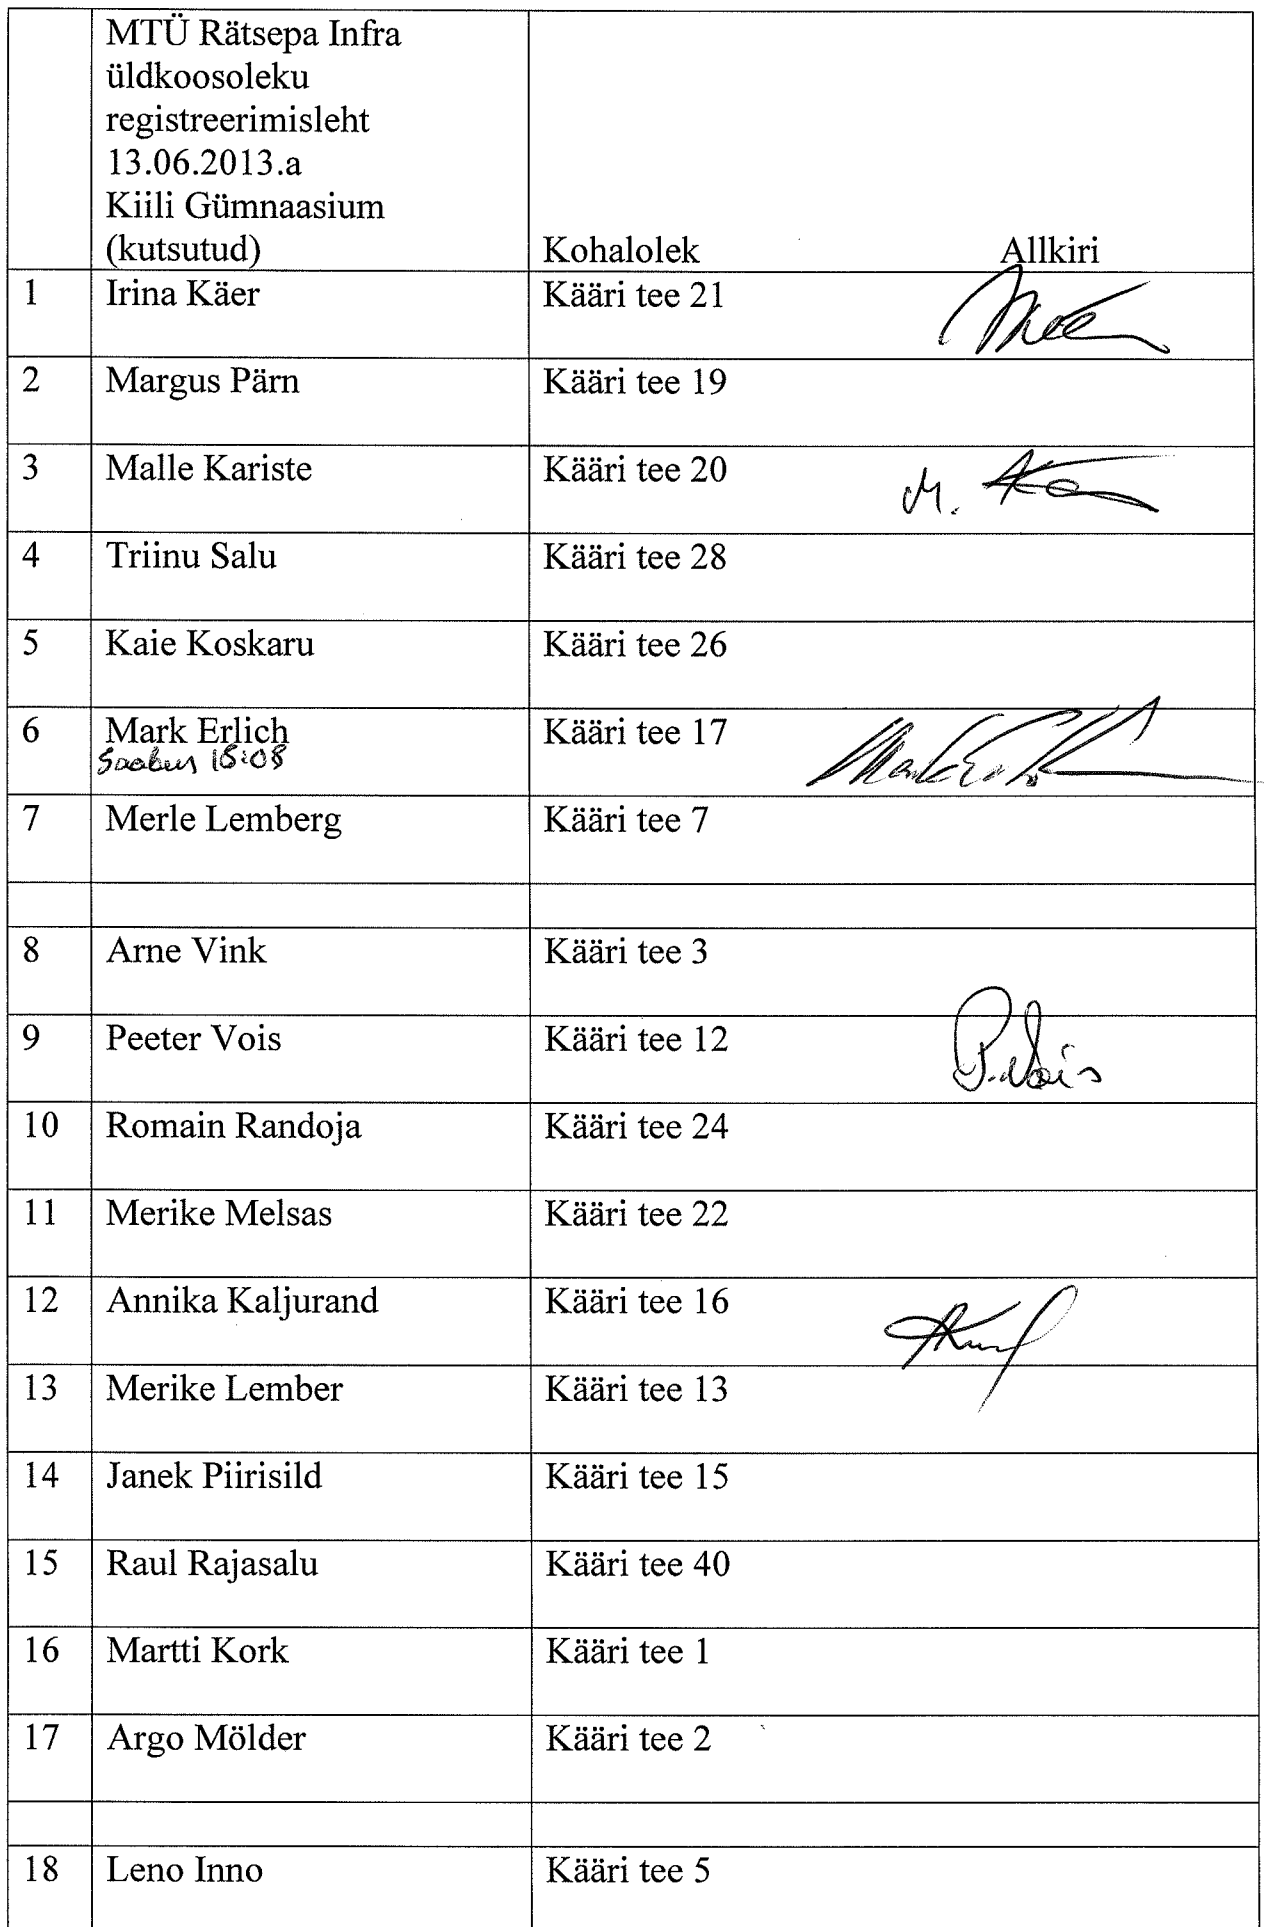 MTÜ Rätsepa Infra
üldkoosoleku
registreerimisleht
13.06.2013.a
Kiili Gümnaasium
(kutsutud) Kohalolek Allkiri
1 Irina Käer Kääri tee 21
2 Margus Pärn Kääri tee 19
3 Malle Kariste Kääri tee 20 M.
4 Triinu Salu Kääri tee 28
5 Kaie Koskaru Kääri tee 26
6 Mark Erlich Kääri tee 17
Saabus 18:08
7 Merle Lemberg Kääri tee 7
8 Arne Vink Kääri tee 3
9 Peeter Vois Kääri tee 12 P.Vois
10 Romain Randoja Kääri tee 24
11 Merike Melsas Kääri tee 22
12 Annika Kaljurand Kääri tee 16
13 Merike Lember Kääri tee 13
14 Janek Piirisild Kääri tee 15
15 Raul Rajasalu Kääri tee 40
16 Martti Kork Kääri tee 1
17 Argo Mölder Kääri tee 2
18 Leno Inno Kääri tee 5